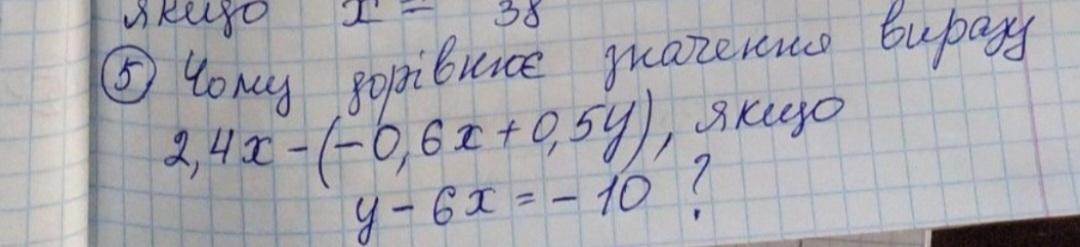 якщо x = 38
⑤ Чому дорівнює значення виразу
2,4x - (-0,6x + 0,5y), якщо
y - 6x = - 10 ?